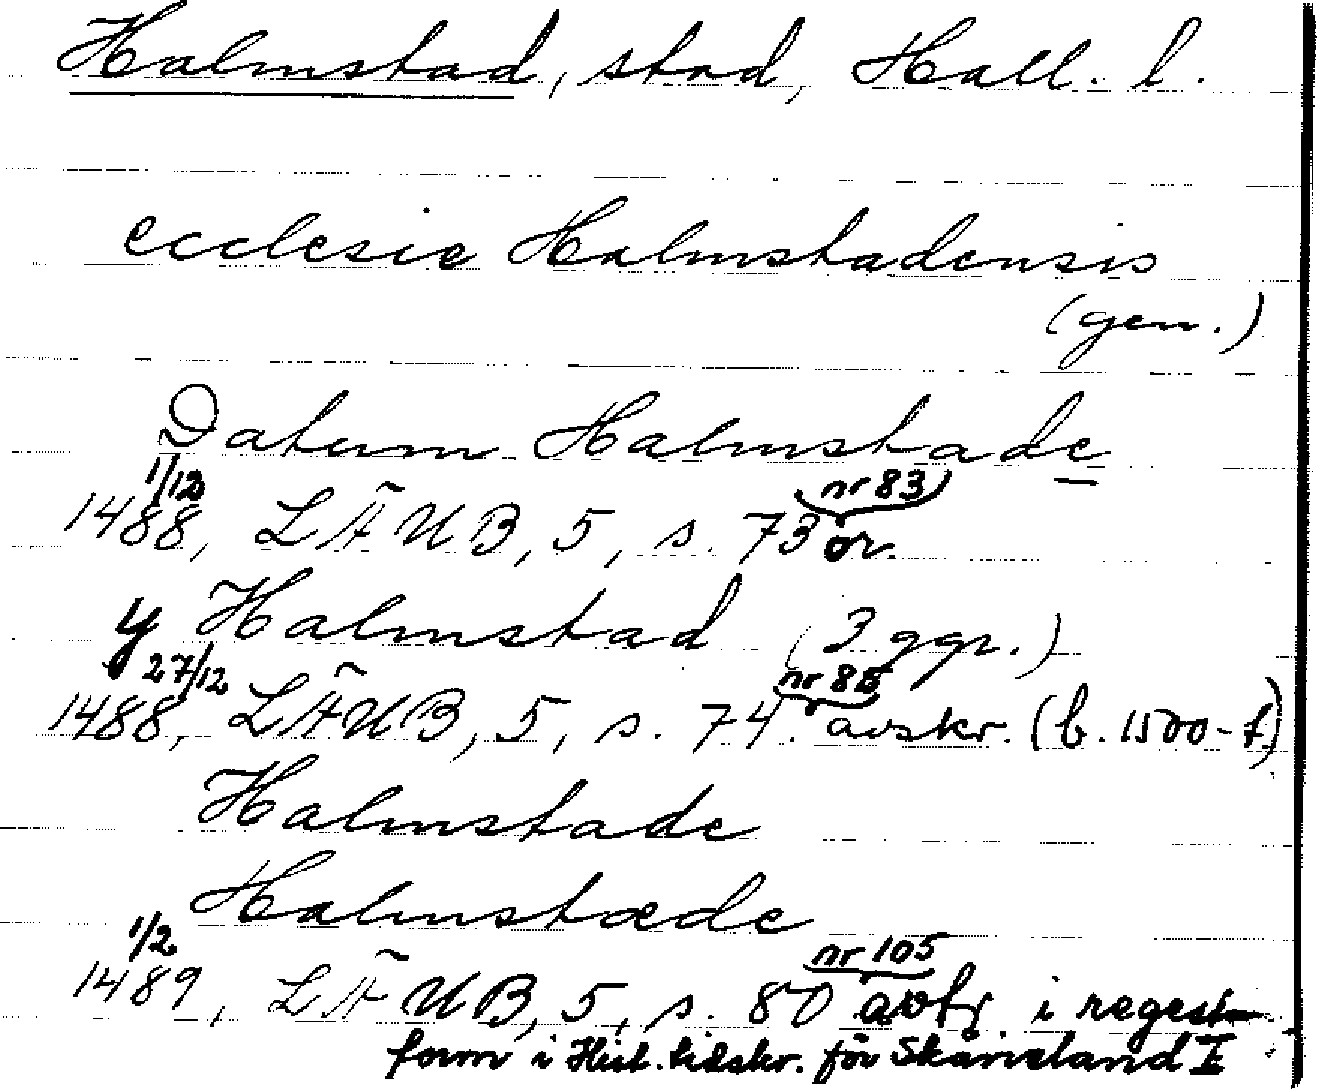 Halmstad, stad, Hall. l.
ecclesie Halmstadensis
(gen.)
Datum Halmstade
1/12 nr 83
1488, LÄUB, 5, s. 73 or.
y Halmstad (3 ggr.)
27/12 nr 85
1488, LÄUB, 5, s. 74. avskr. (b. 1500-t)
Halmstade
Halmstæde
1/2 nr 105
1489, LÄUB, 5, s. 80 i regest
form i Hist. tidskr. för Skåneland I